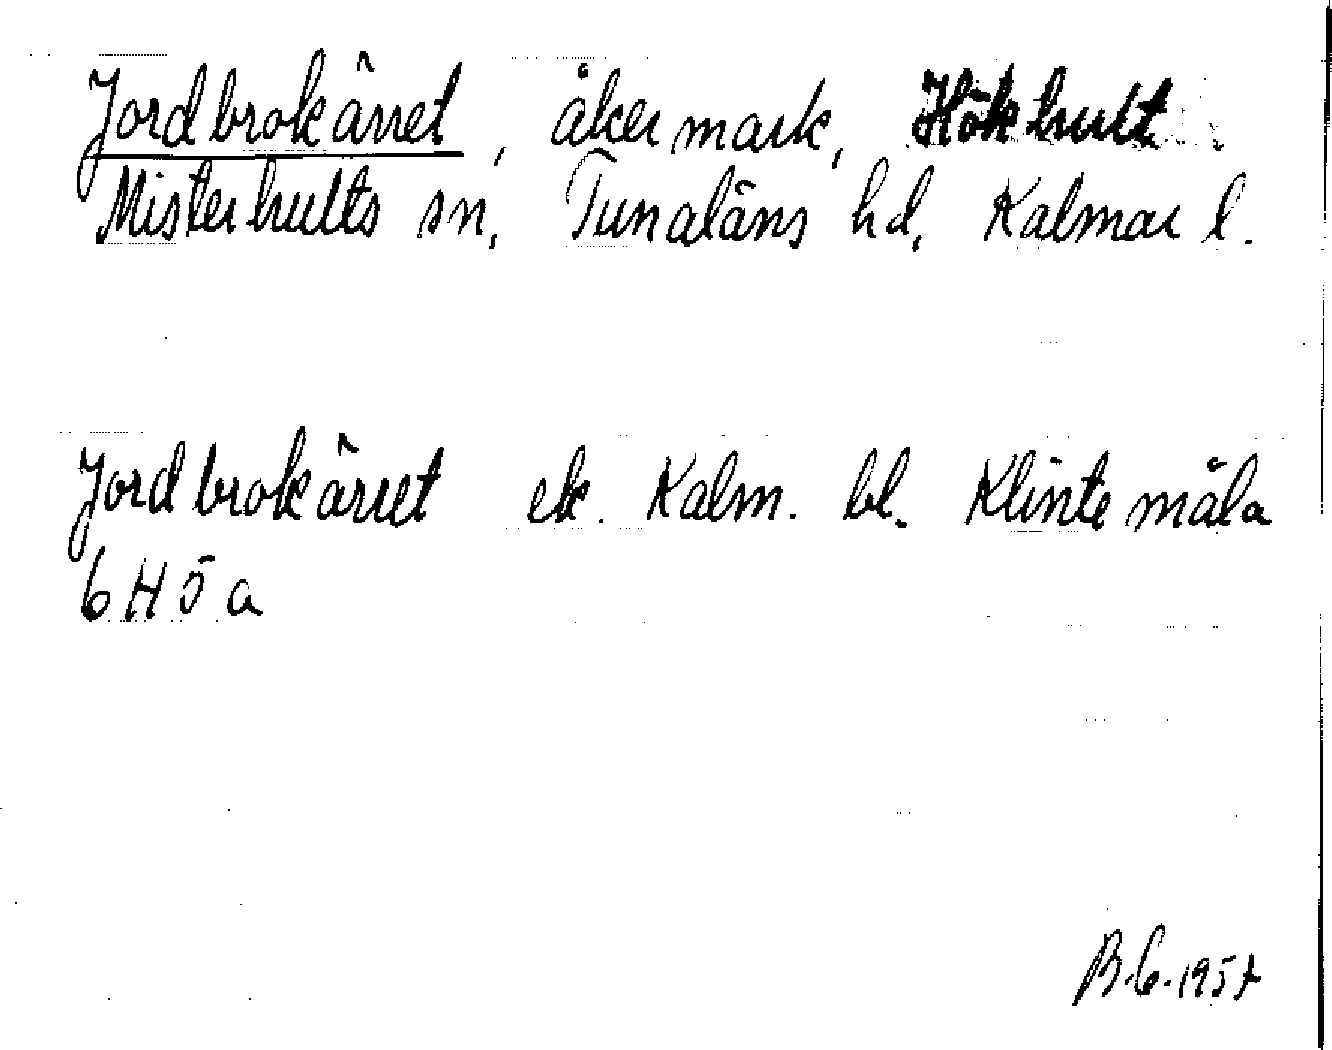 Jordbrokärret, åkermark, Hökhult
Misterhults sn, Tunaläns hd, Kalmar l.
Jordbrokärret ek. Kalm. bl. Klintemåla
6H5a
B.C. 1957